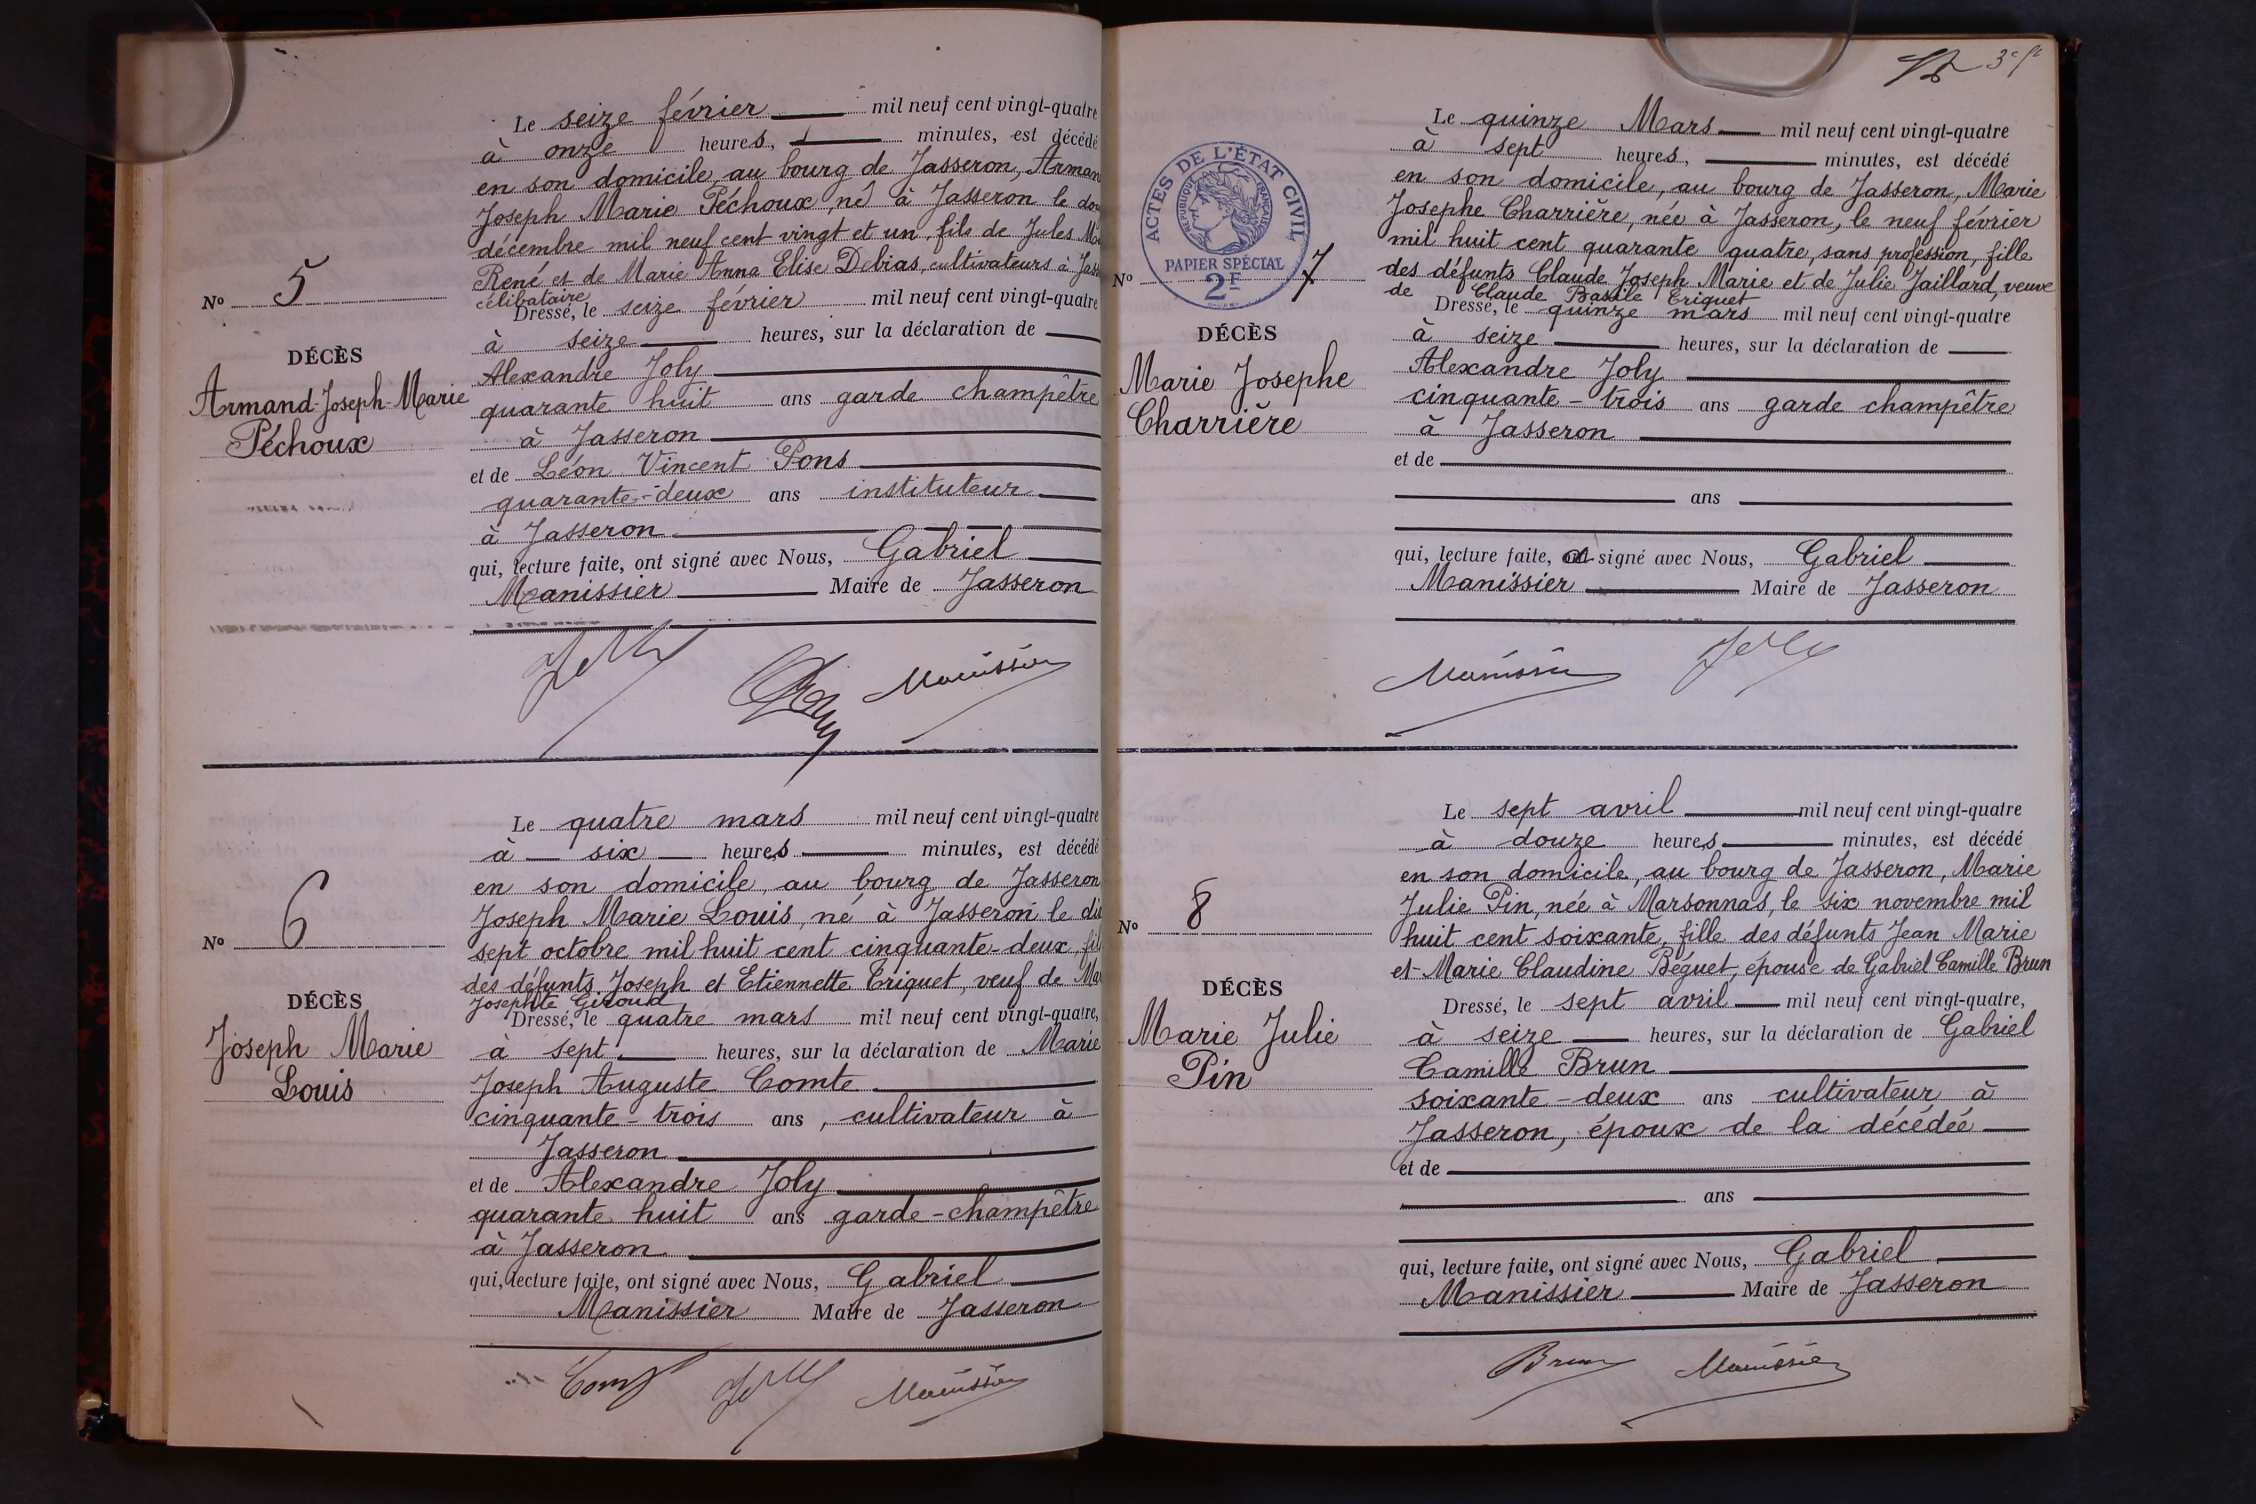 Le seize février mil neuf cent vingt-quatre
à onze heures, minutes, est décédé
en son domicile, au bourg de Jasseron, Arman
Joseph Marie Péchoux, né à Jasseron le dou
décembre mil neuf cent vingt et un, fils de Jules
René et de Marie Anna Elise Debias, cultivateurs à Jass
célibataire
Dressé, le seize février mil neuf cent vingt-quatre
à seize heures, sur la déclaration de
Alexandre Joly
quarante huit ans garde champêtre
à Jasseron
et de Léon Vincent Pons
quarante-deux ans instituteur
à Jasseron
qui, lecture faite, ont signé avec Nous, Gabriel
Manissier Maire de Jasseron
No 5
DÉCÈS
Armand-Joseph-Marie
Péchoux
Joly
Manissier
Le quatre mars mil neuf cent vingt-quatre
à six heures minutes, est décédé
en son domicile, au bourg de Jasseron
Joseph Marie Louis, né à Jasseron le dix
sept octobre mil huit cent cinquante-deux, fil
des défunts Joseph et Etiennette Triquet, veuf de Mar
Josephte Giroud
Dressé, le quatre mars mil neuf cent vingt-quatre,
à sept heures, sur la déclaration de Marie
Joseph Auguste Comte
cinquante-trois ans, cultivateur à
Jasseron
et de Alexandre Joly
quarante huit ans garde-champêtre
à Jasseron
qui, lecture faite, ont signé avec Nous, Gabriel
Manissier Maire de Jasseron
No 6
DÉCÈS
Joseph Marie
Louis
Comte
Joly
Manissier
3e ft
ACTES DE L'ÉTAT CIVIL
RÉPUBLIQUE FRANÇAISE
PAPIER SPÉCIAL
2F
No 7
DÉCÈS
Marie Josephe
Charrière
Le quinze Mars mil neuf cent vingt-quatre
à sept heures, minutes, est décédé
en son domicile, au bourg de Jasseron, Marie
Josephe Charrière, née à Jasseron, le neuf février
mil huit cent quarante quatre, sans profession, fille
des défunts Claude Joseph Marie et de Julie Jaillard, veuve
de Claude Basile Triquet
Dressé, le quinze mars mil neuf cent vingt-quatre
à seize heures, sur la déclaration de
Alexandre Joly
cinquante-trois ans garde champêtre
à Jasseron
et de
ans
qui, lecture faite, a signé avec Nous, Gabriel
Manissier Maire de Jasseron
Manissier
Joly
No 8
DÉCÈS
Marie Julie
Pin
Le sept avril mil neuf cent vingt-quatre
à douze heures minutes, est décédé
en son domicile, au bourg de Jasseron, Marie
Julie Pin, née à Marsonnas, le six novembre mil
huit cent soixante, fille des défunts Jean Marie
et Marie Claudine Béguet, épouse de Gabriel Camille Brun
Dressé, le sept avril mil neuf cent vingt-quatre,
à seize heures, sur la déclaration de Gabriel
Camille Brun
soixante-deux ans cultivateur à
Jasseron, époux de la décédée
et de
ans
qui, lecture faite, ont signé avec Nous, Gabriel
Manissier Maire de Jasseron
Brun
Manissier